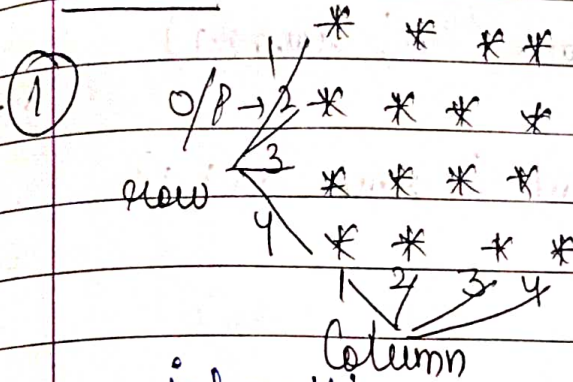 1 * * * *
① O/P → 2 * * * *
3 * * * *
row
4 * * * *
1 2 3 4
Column